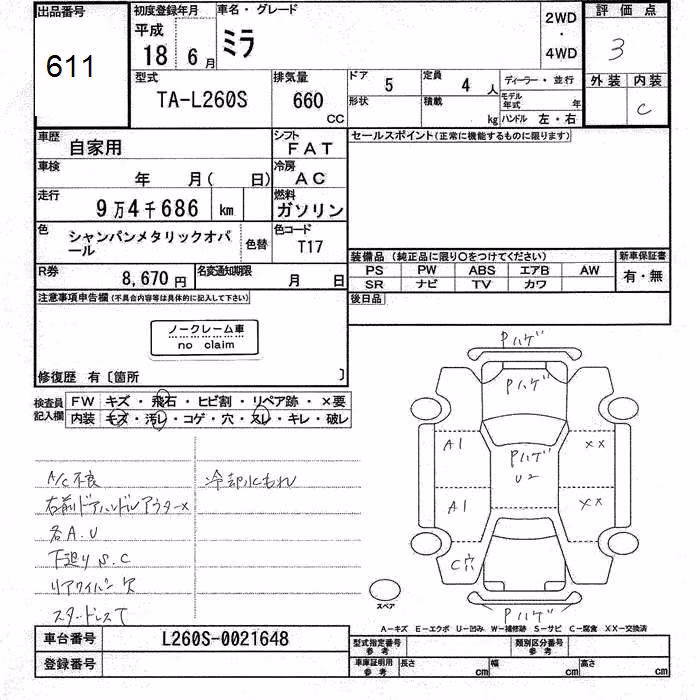 出品番号 初度登録年月 車名・グレード 2WD 評価点
611 平成 ミラ ・ 3
18年 6月 4WD
型式 排気量 ドア 5 定員 4人 ディーラー・並行 外装 内装
TA-L260S 660 形状 積載 モデル年式 年 C
CC kg ハンドル 左・右
車歴 自家用 シフト FAT セールスポイント(正常に機能するものに限ります)
車検 年 月( 日) 冷房 AC
走行 9万4千686 km 燃料 ガソリン
色 シャンパンメタリックオパール 色替 色コード T17
装備品 (純正品に限り○をつけてください) 新車保証書
R券 8,670円 名変通知期限 月 日 PS PW ABS エアB AW 有・無
SR ナビ TV カワ
注意事項申告欄(不具合内容等は具体的に記入して下さい) 後日品
ノークレーム車
no claim
修復歴 有〔箇所 〕
検査員記入欄 FW キズ・飛石・ヒビ割・リペア跡・×要
内装 キズ・汚レ・コゲ・穴・スレ・キレ・破レ
A/C不良 冷却水もれ
右前ドアハンドルアウター×
各A.U
下廻りS.C
リアワイパー欠
スタッドレスT
Pハゲ
Pハゲ
A1 Pハゲ ××
U2
A1 ××
C穴
Pハゲ
スペア
A-キズ E-エクボ U-凹み W-補修跡 S-サビ C-腐食 XX-交換済
車台番号 L260S-0021648 型式指定番号 参考 類別区分番号 参考
登録番号 車庫証明用 参考 長さ cm 幅 cm 高さ cm